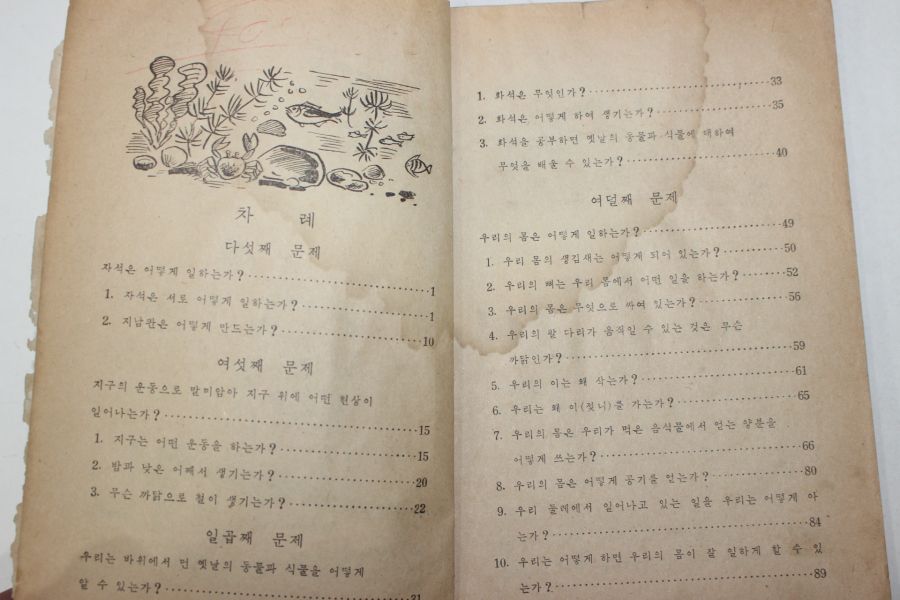 40
차 례
다섯째 문제
자석은 어떻게 일하는가?……1
1. 자석은 서로 어떻게 일하는가?……1
2. 지남판은 어떻게 만드는가?……10
여섯째 문제
지구의 운동으로 말미암아 지구 위에 어떤 현상이
일어나는가?……15
1. 지구는 어떤 운동을 하는가?……15
2. 밤과 낮은 어째서 생기는가?……20
3. 무슨 까닭으로 철이 생기는가?……22
일곱째 문제
우리는 바위에서 먼 옛날의 동물과 식물을 어떻게
알 수 있는가?……31
1. 화석은 무엇인가?……33
2. 화석은 어떻게 하여 생기는가?……35
3. 화석을 공부하면 옛날의 동물과 식물에 대하여
무엇을 배울 수 있는가?……40
여덟째 문제
우리의 몸은 어떻게 일하는가?……49
1. 우리 몸의 생김새는 어떻게 되어 있는가?……50
2. 우리의 뼈는 우리 몸에서 어떤 일을 하는가?……52
3. 우리의 몸은 무엇으로 싸여 있는가?……56
4. 우리의 팔 다리가 움직일 수 있는 것은 무슨
까닭인가?……59
5. 우리의 이는 왜 삭는가?……61
6. 우리는 왜 이(젖니)를 가는가?……65
7. 우리의 몸은 우리가 먹은 음식물에서 얻는 양분을
어떻게 쓰는가?……66
8. 우리의 몸은 어떻게 공기를 얻는가?……80
9. 우리 둘레에서 일어나고 있는 일을 우리는 어떻게 아
는가?……84
10. 우리는 어떻게 하면 우리의 몸이 잘 일하게 할 수 있
는가?……89